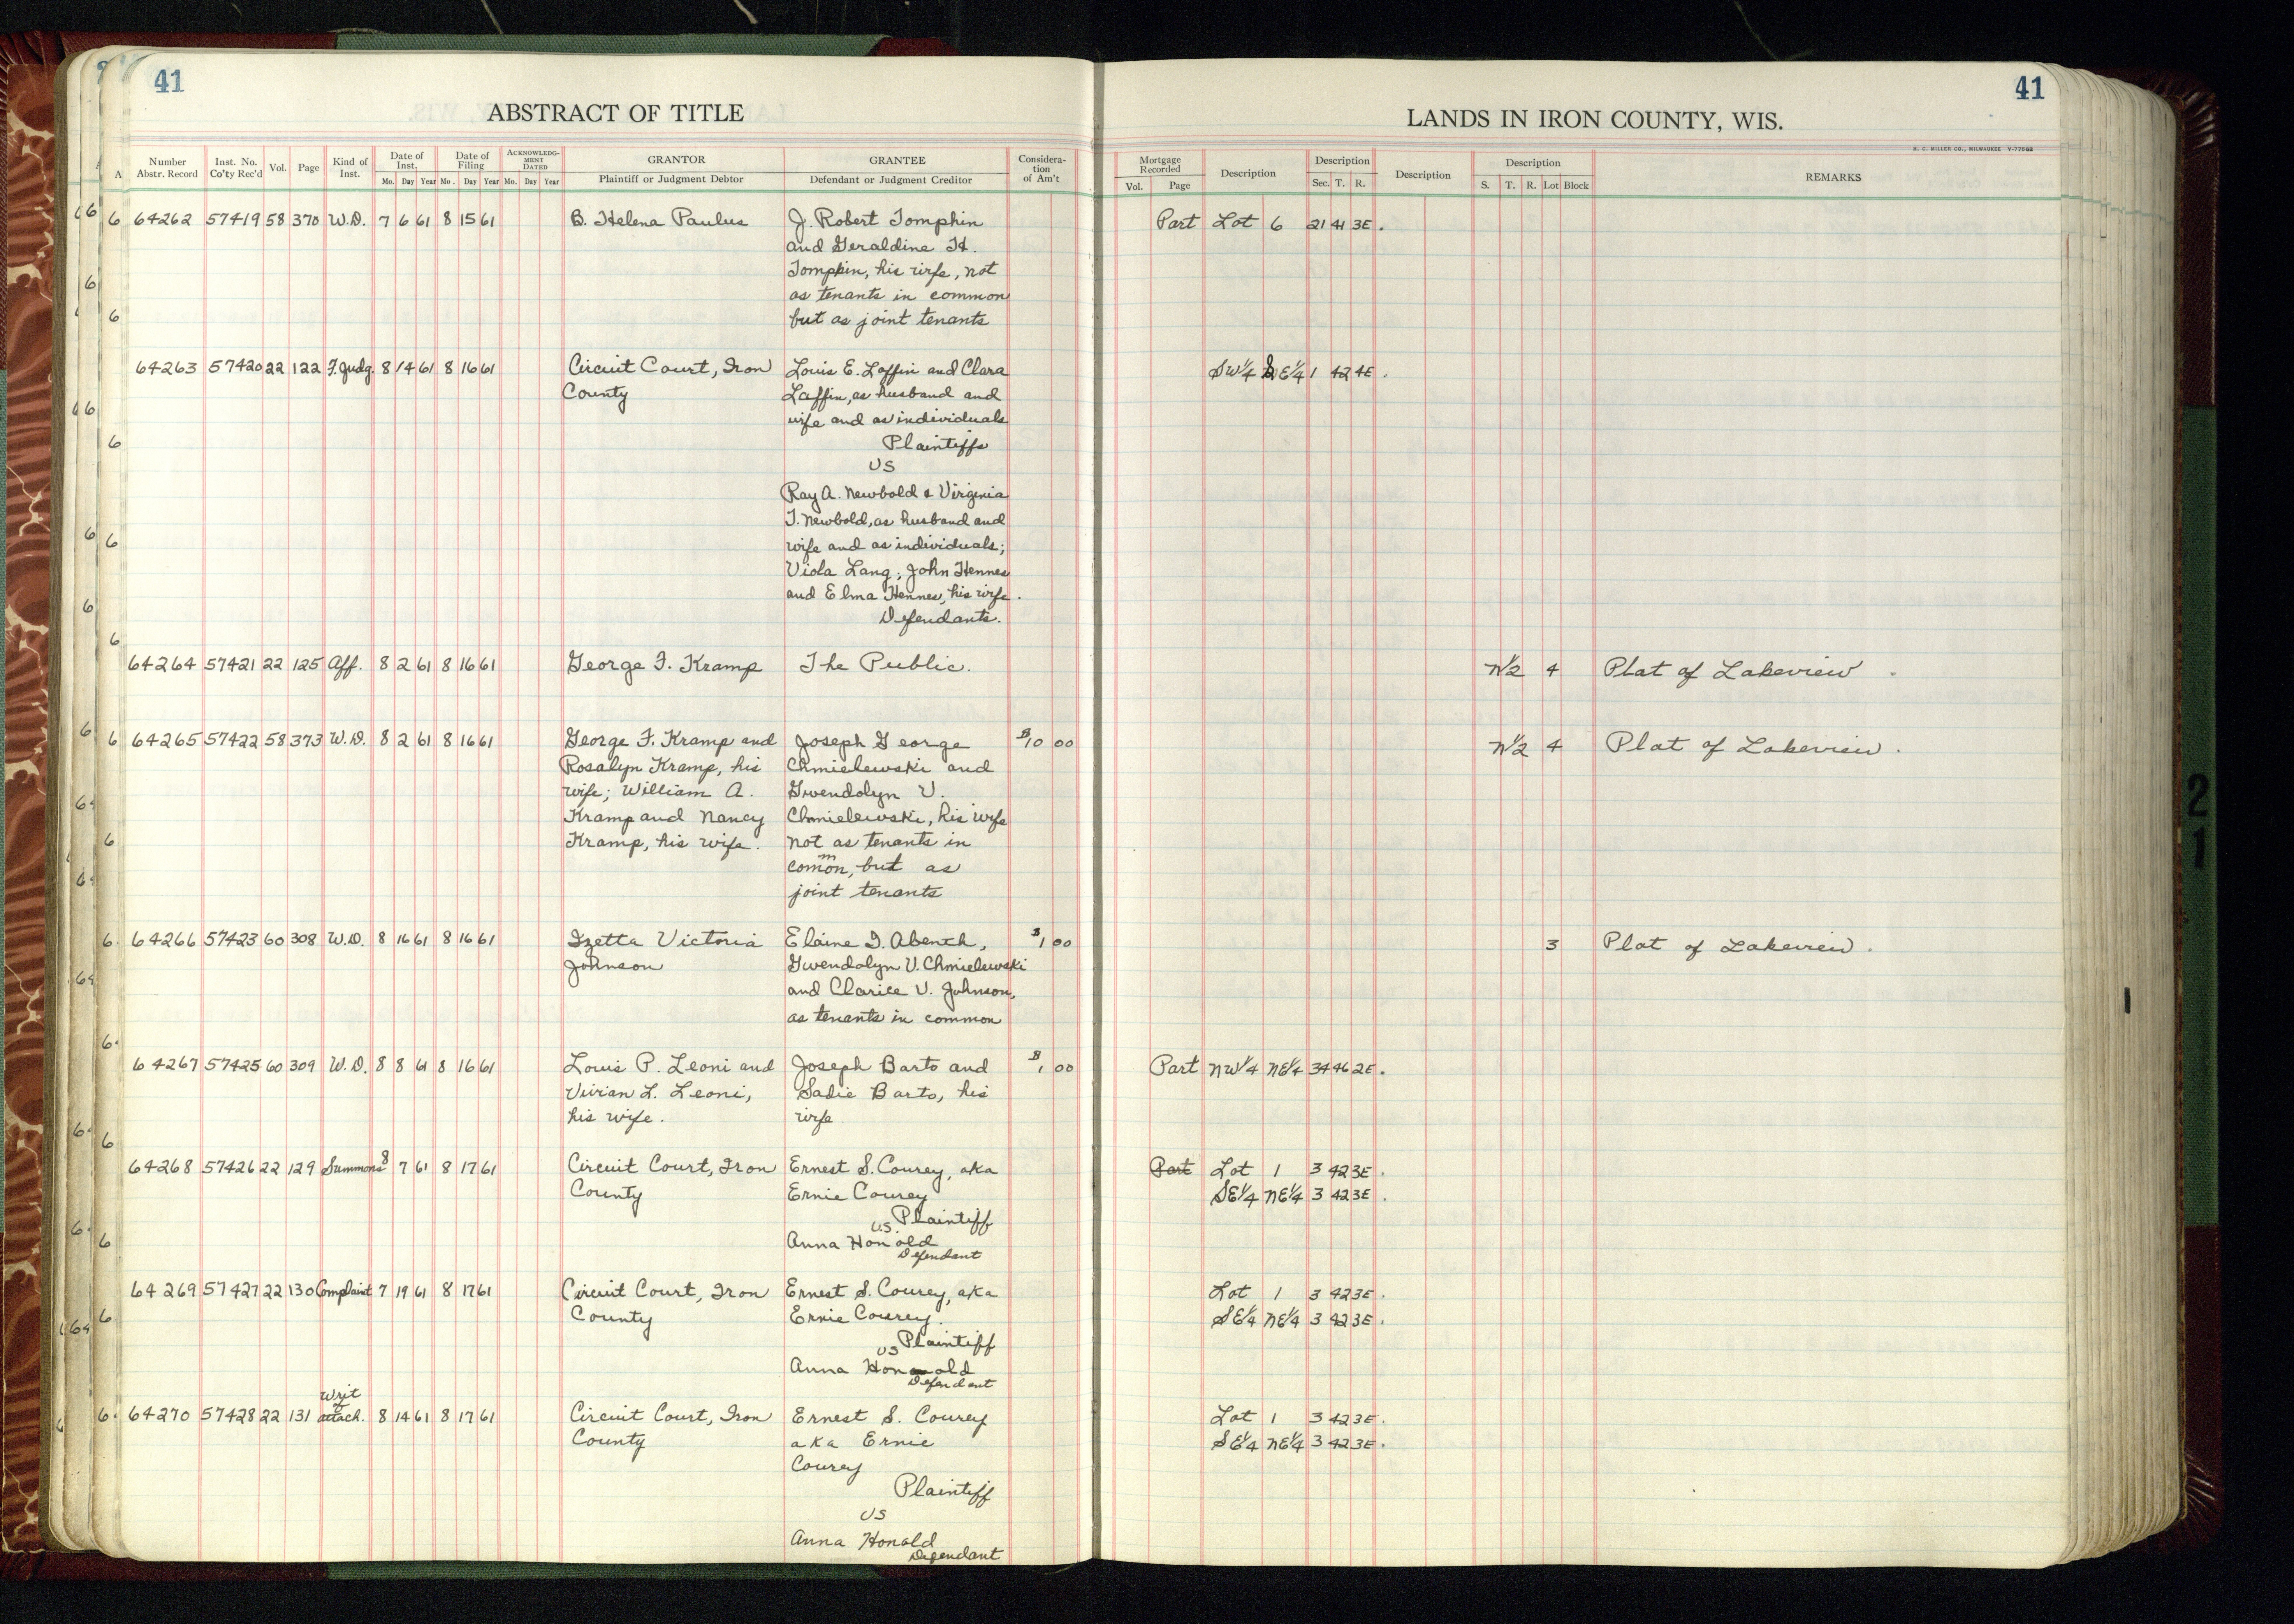 41
ABSTRACT OF TITLE
Number Abstr. Record Inst. No. Co'ty Rec'd Vol. Page Kind of Inst. Date of Inst. Mo. Day Year Date of Filing Mo. Day Year ACKNOWLEDGMENT DATED Mo. Day Year GRANTOR Plaintiff or Judgment Debtor GRANTEE Defendant or Judgment Creditor Consideration of Am't
64262 57419 58 370 W.D. 7 6 61 8 15 61 B. Helena Paulus J. Robert Tompkin
and Geraldine H.
Tompkin, his wife, not
as tenants in common
but as joint tenants
64263 57420 22 122 F. Judg. 8 14 61 8 16 61 Circuit Court, Iron Louis E. Laffin and Clara
County Laffin, as husband and
wife and as individuals
Plaintiffs
VS
Ray A. Newbold & Virginia
T. Newbold, as husband and
wife and as individuals;
Viola Lang; John Hennes
and Elma Hennes, his wife.
Defendants.
64264 57421 22 125 Aff. 8 2 61 8 16 61 George F. Kramp The Public.
64265 57422 58 373 W.D. 8 2 61 8 16 61 George F. Kramp and Joseph George $10 00
Rosalyn Kramp, his Chmielewski and
wife; William A. Gwendolyn V.
Kramp and Nancy Chmielewski, his wife
Kramp, his wife. not as tenants in
common, but as
joint tenants
64266 57423 60 308 W.D. 8 16 61 8 16 61 Izetta Victoria Elaine I. Abench, $1 00
Johnson Gwendolyn V. Chmielewski
and Clarice V. Johnson,
as tenants in common
64267 57425 60 309 W.D. 8 8 61 8 16 61 Louis P. Leoni and Joseph Barto and $1 00
Vivian L. Leoni, Sadie Barto, his
his wife. wife
64268 57426 22 129 Summons 8 7 61 8 17 61 Circuit Court, Iron Ernest S. Courey, aka
County Ernie Courey
Plaintiff
VS.
Anna Honold
Defendant
64269 57427 22 130 Complaint 7 19 61 8 17 61 Circuit Court, Iron Ernest S. Courey, aka
County Ernie Courey.
Plaintiff
VS
Anna Honold
Defendant
64270 57428 22 131 Writ of attach. 8 14 61 8 17 61 Circuit Court, Iron Ernest S. Courey
County aka Ernie
Courey
Plaintiff
VS
Anna Honold
Defendant
41
LANDS IN IRON COUNTY, WIS.
H. C. MILLER CO., MILWAUKEE
Mortgage Recorded Vol. Page Description Description Sec. T. R. Description Description S. T. R. Lot Block REMARKS
Part Lot 6 21 41 3E.
SW1/4 SE1/4 1 42 4E.
N1/2 4 Plat of Lakeview.
N1/2 4 Plat of Lakeview.
3 Plat of Lakeview.
Part NW1/4 NE1/4 34 46 2E.
Part Lot 1 3 42 3E.
SE1/4 NE1/4 3 42 3E.
Lot 1 3 42 3E.
SE1/4 NE1/4 3 42 3E.
Lot 1 3 42 3E.
SE1/4 NE1/4 3 42 3E.
21